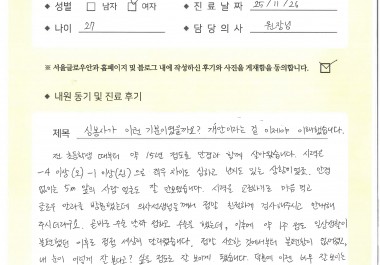 ◆ 성별 □ 남자 ☑ 여자 ◆ 진료날짜 25/11/26
◆ 나이 27 ◆ 담당의사 원장님
※ 서울글로우안과 홈페이지 및 블로그 내에 작성하신 후기와 사진을 게재함을 동의합니다. ☑
◆ 내원 동기 및 진료 후기
제목 심봉사가 이런 기분이었을까요? 개안이라는 걸 이제야 이해했습니다.
전 초등학생 때부터 약 15년 정도로 안경과 함께 살아왔습니다. 시력은
-4 이상(도) -1 이상(원)으로 좌우 차이도 심하고 난시도 있는 상황이었고, 안경
없이는 5m 앞의 사람 얼굴도 잘 안보였습니다. 시력을 교정하기로 마음 먹고
글로우 안과를 방문했는데 의사선생님께서 정말 친절하게 검사해주시고 안내해
주시더라구요. 수술 했는데, 이후에 약 1주 정도 일상생활이
불편했던 이후로 점점 세상이 안경없이 불편함이 없어졌고,
내 눈이 이렇게 잘 보였나? 싶은 정도로 잘 보이게 됐습니다. 덕분에 이런 너무 잘 보이는